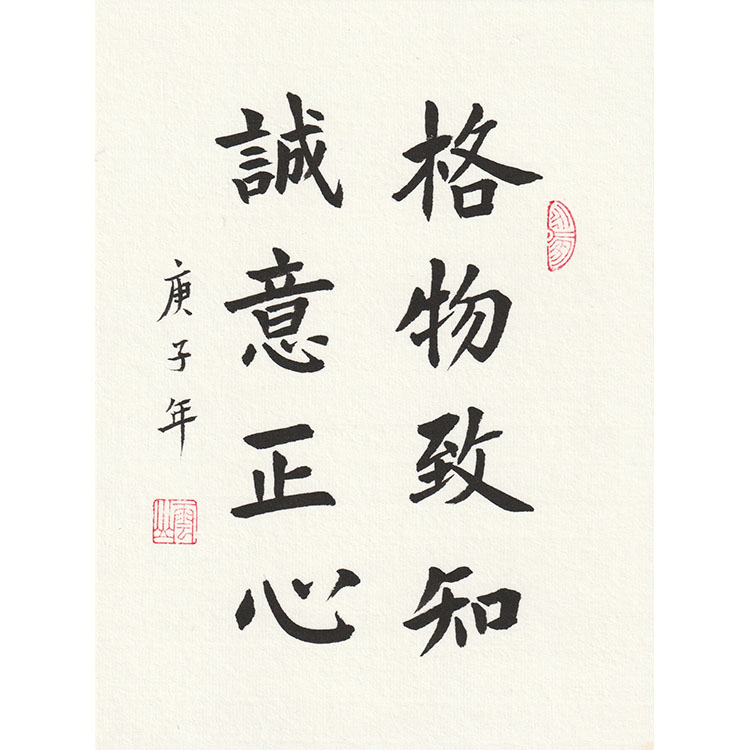 格物致知
誠意正心
庚子年